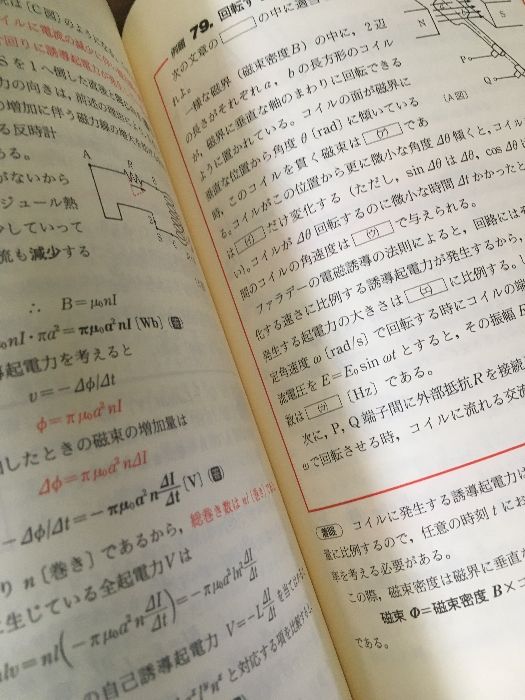 は〔C図〕のようになる。
イルに電流の減少に
回りに誘導起電力が
Sを1へ倒した直後と
力の向きは、前述の
の増加に伴う磁力線の増大を
る反時計
ある。
がないから
ジュール熱
少していって
流も減少する
A
R
S
∴ B=μ₀nI
₀nI・πa²=πμ₀a²nI〔Wb〕(答)
導起電力を考えると
v=−Δϕ/Δt
ϕ=πμ₀a²nI
加したときの磁束の増加量は
Δϕ=πμ₀a²nΔI
−Δϕ/Δt=−πμ₀a²nΔI/Δt〔V〕(答)
り n〔巻き〕であるから,
総巻き数は nl〔巻き〕
に生じている全起電力Vは
nlv=nl(−πμ₀a²nΔI/Δt)=−πμ₀a²ln²ΔI/Δt
の自己誘導起電力 V=−LΔI/Δt
と対応する項を比較すると
例題 79. 回転す
次の文章の の中に適当
れよ。
一様な磁界(磁束密度B)の中に,2辺
の長さがそれぞれa,bの長方形のコイル
が,磁界に垂直な軸のまわりに回転できる
ように置かれている。コイルの面が磁界に
垂直な位置から角度θ〔rad〕に傾いている
時,このコイルを貫く磁束は (ア) であ
る。コイルがこの位置から更に微小な角度Δθ傾くと,コイル
は (イ) だけ変化する(ただし,sin ΔθはΔθ,cos Δθは
い)。コイルがΔθ回転するのに微小な時間Δtかかったと
間のコイルの角速度は (ウ) で与えられる。
ファラデーの電磁誘導の法則によると,回路には
化する速さに比例する誘導起電力が発生するから,
発生する起電力の大きさは (エ) に比例する。
定角速度ω〔rad/s〕で回転する時にコイルの端
流電圧をE=E₀sin ωtとすると,その振幅E
数は 〔Hz〕である。
次に,P,Q端子間に外部抵抗Rを接続
ωで回転させる時,コイルに流れる交流
N
S
P
Q
〔A図〕
コイルに発生する誘導起電力は
量に比例するので,任意の時刻tにお
率を考える必要がある。
この際,磁束密度は磁界に垂直
磁束 Φ=磁束密度 B×
である。